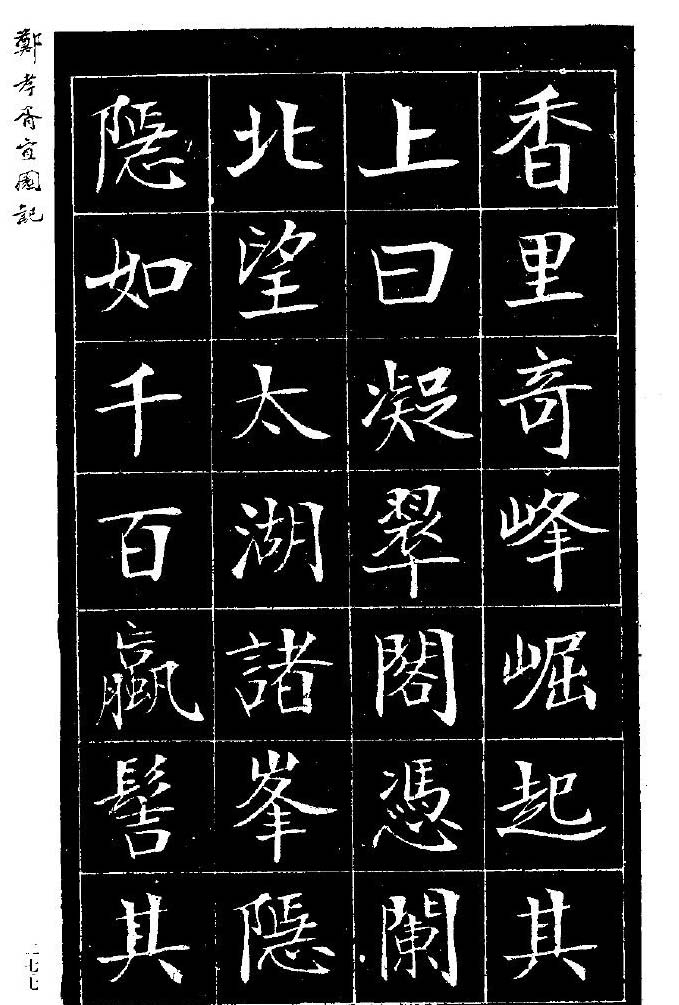 香里奇峰崛起其
上曰凝翠閣憑闌
北望太湖諸峯隱
隱如千百蠃髻其
鄭孝胥宜園記
二七七